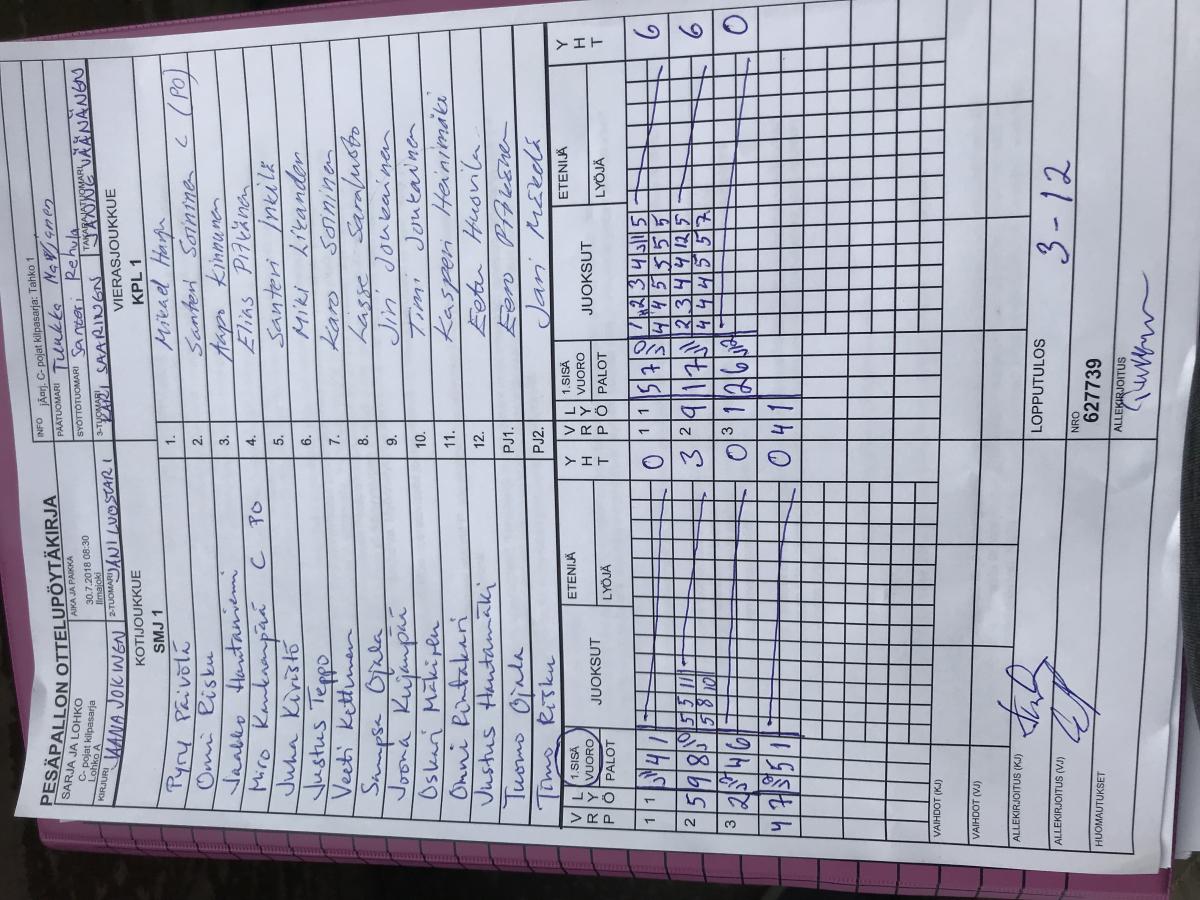 PESÄPALLON OTTELUPÖYTÄKIRJA
SARJA JA LOHKO
C- pojat kilpasarja
Lohko A
AIKA JA PAIKKA
30.7.2018 08:30
Ilmajoki
INFO jÄnrj. C- pojat kilpasarja: Tahko 1
PÄÄTUOMARI Tuukka
SYÖTTÖTUOMARI Santeri Retula
KIRJURI JAANA JOKINEN
2-TUOMARI JANI LUOSTARI
3-TUOMARI KARI SAARINEN
TAKARAJATUOMARI JANNE VÄÄNÄNEN
KOTIJOUKKUE
SMJ 1
VIERASJOUKKUE
KPL 1
Pyry Päivölä 1. Mikael Harpa
Omni Risku 2. Santeri Soininen C (PO)
Jaakko Hautaniemi 3. Aapo Kinnunen
Miro Kauhanpää C PO 4. Elias Pitkänen
Juha Kivistö 5. Santeri Inkilä
Justus Teppo 6. Miki Likanden
Veeti Kettunen 7. Karo Soininen
Simpsa Ojala 8. Lasse Sarahuisto
Joona Kujanpää 9. Jiri Joukainen
Oskari Mäkinen 10. Timi Joukainen
Onni Rintakari 11. Kasperi Heinimäki
Justus Hautamäki 12. Eetu Huovila
Tuomo Ojala PJ1. Eero Pitkänen
Timo Risku PJ2. Jari Mäkelä
V R P L Y Ö 1.SISÄ VUORO PALOT JUOKSUT ETENIJÄ LYÖJÄ Y H T V R P L Y Ö 1.SISÄ VUORO PALOT JUOKSUT ETENIJÄ LYÖJÄ Y H T
1 1 4 1 0 1 1 5 7 6
2 5 9 8 5 5 11 3 2 9 1 7 2 3 4 4 12 5 6
5 8 10 4 4 4 5 5 7
3 2 4 6 0 3 1 2 6 0
4 7 5 1 0 4 1
VAIHDOT (KJ)
VAIHDOT (VJ)
ALLEKIRJOITUS (KJ)
LOPPUTULOS
3 - 12
ALLEKIRJOITUS (VJ)
NRO
627739
HUOMAUTUKSET
ALLEKIRJOITUS